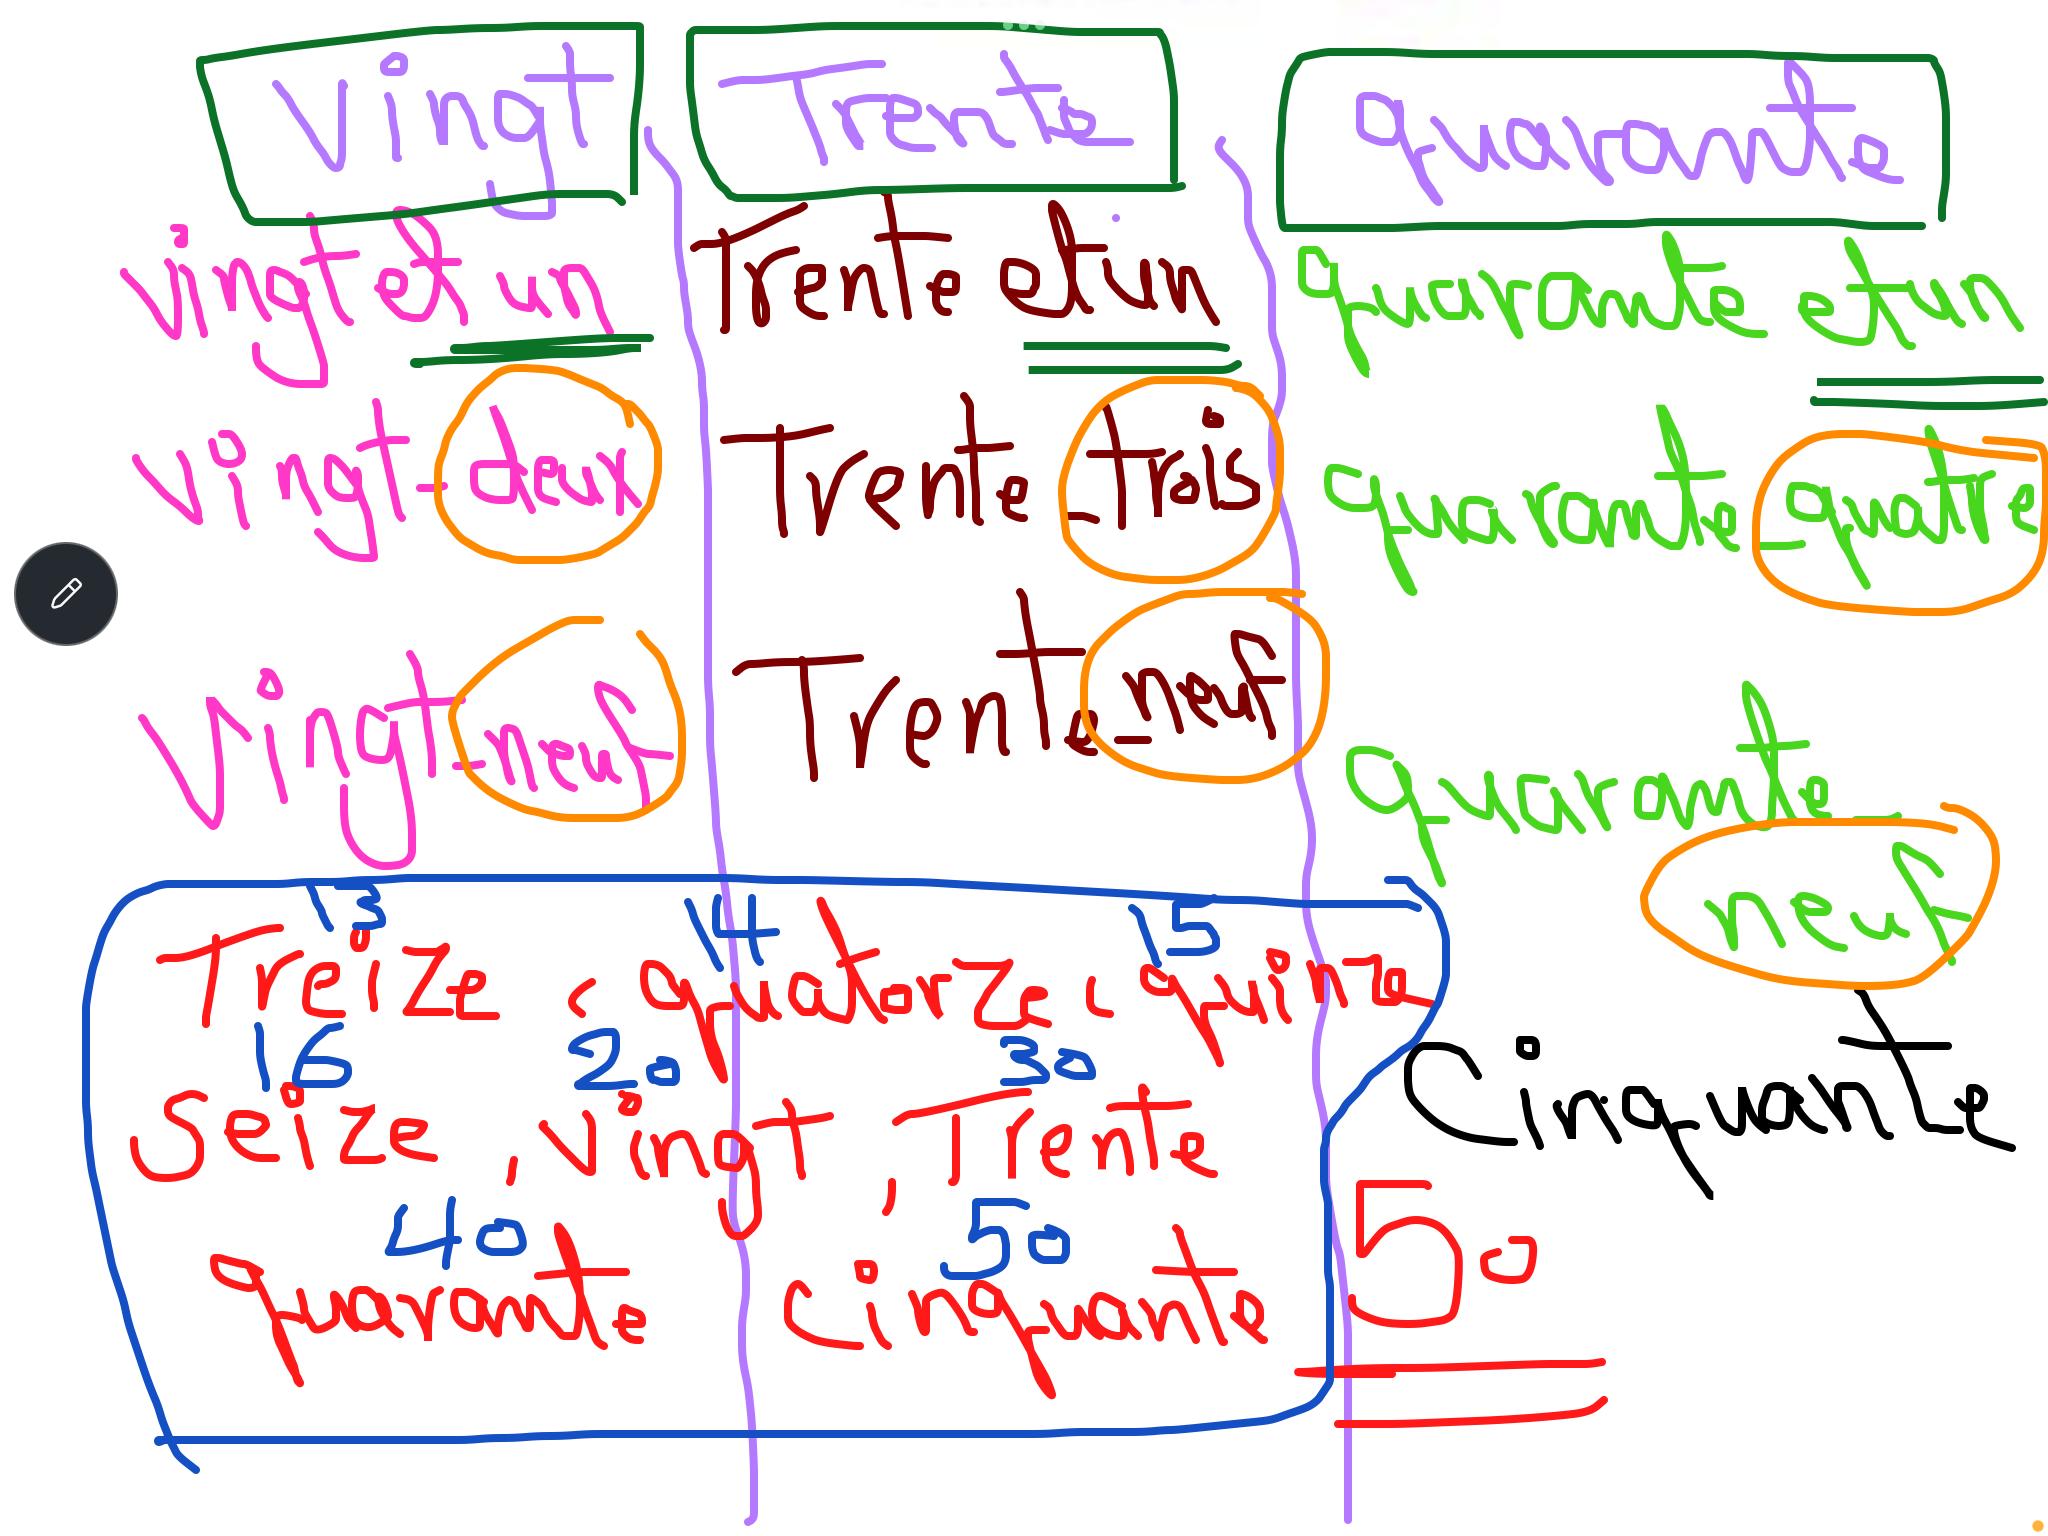 Vingt Trente quarante
vingt et un Trente et un quarante et un
vingt-deux Trente-trois quarante-quatre
Vingt-neuf Trente-neuf quarante-
neuf
13 14 15
Treize, quatorze, quinze
Cinquante
16 20 30
Seize, vingt, Trente
50
40 50
quarante cinquante